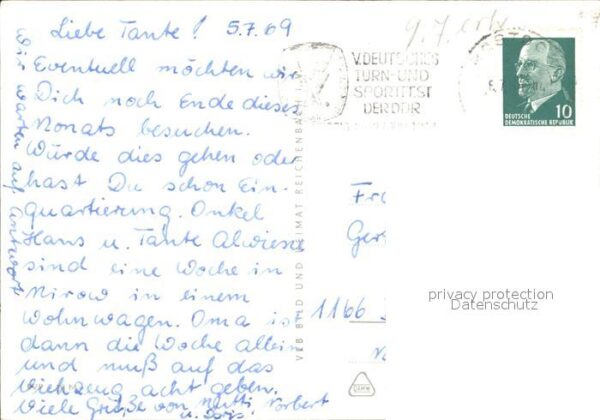 Liebe Tante! 5.7.69
Eventuell möchten wir
Dich noch Ende dieses
Monats besuchen.
Würde dies gehen oder
hast Du schon Ein-
quartierung. Onkel
Hans u. Tante Alwiese
sind eine Woche in
Mirow in einem
Wohnwagen. Oma ist
dann die Woche allein
und muß auf das
Viehzeug acht geben.
Viele Grüße von Mutti, Norbert
u. Doris.
Wir warten auf Antwort
9.7.
V. DEUTSCHES
TURN-UND
SPORTFEST
DER DDR
10
DEUTSCHE
DEMOKRATISCHE REPUBLIK
VEB BILD UND HEIMAT REICHENBACH
Fr
Ger
1166
privacy protection
Datenschutz